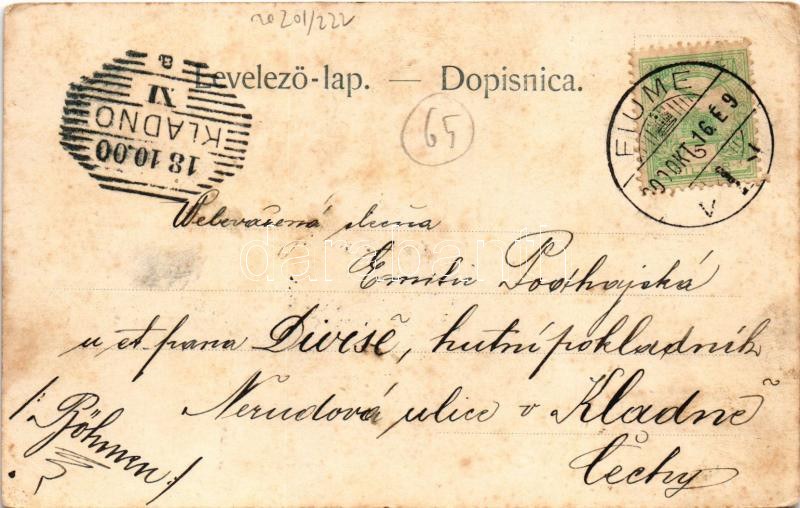 20201/222
Levelező-lap. — Dopisnica.
18 10.00
KLADNO
XI
a
65
FIUME
900 OKT. 16. É 9
Velevážená slečna
Emilie Podhajská
u ct. pana Divišě, hutní pokladník
Nerudová ulice v Kladně
Čechy
/: Böhmen :/
darabanth